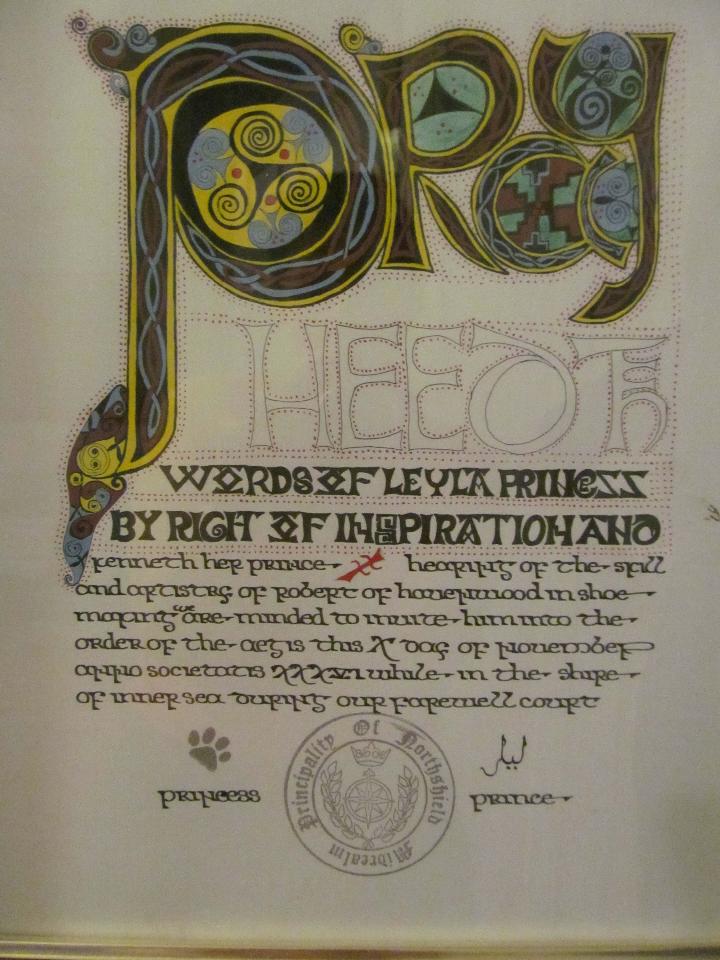 PRay
HEED THE
WORDS OF LEYLA PRINCESS
BY RIGHT OF INSPIRATION AND
kenneth her prince hearing of the skill
and artistry of robert of in shoe
making we are minded to invite him into the
order of the aegis this X day of november
anno societatis XXXVI while in the shire
of inner sea during our farewell court
princess prince
Principality Of Northshield
Midrealm